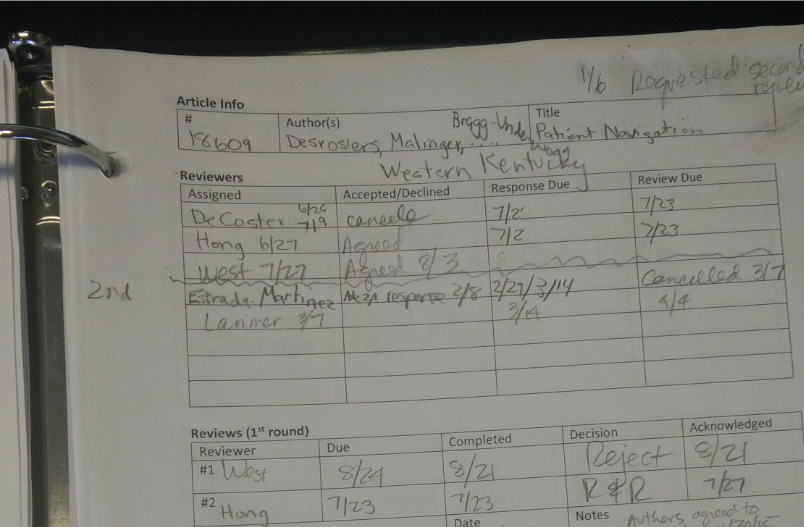 1/6 Requested second review
Article Info
# Author(s) Title
18609 Desrosiers, Malinger, .... Bragg-Underwood Patient Navigation
Western Kentucky
Reviewers
Assigned Accepted/Declined Response Due Review Due
DeCoster 6/26 7/9 cancele 7/2 7/23
Hong 6/27 Agreed 7/2 7/23
West 7/27 Agreed 8/3
2nd Estrada-Martinez response 2/8 2/29/3/14 Cancelled 3/7
Larimer 3/7 3/14 4/4
Reviews (1st round)
Reviewer Due Completed Decision Acknowledged
#1 West 8/24 8/21 Reject 8/21
#2 Hong 7/23 7/23 R&R 7/27
Date Notes Authors agreed to